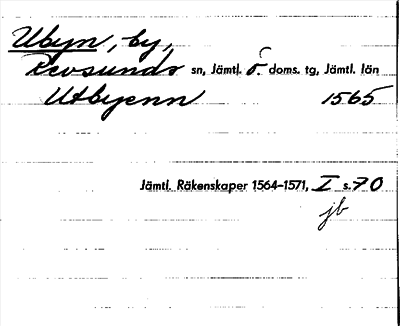 Ubyn, by,
Revsunds sn, Jämtl. ö. doms. tg, Jämtl. län
Utbyenn 1565
Jämtl. Räkenskaper 1564-1571, I s. 70
jb